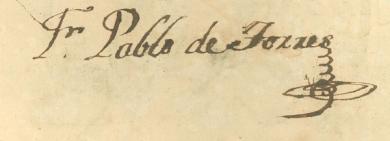 Fr. Pablo de Torres